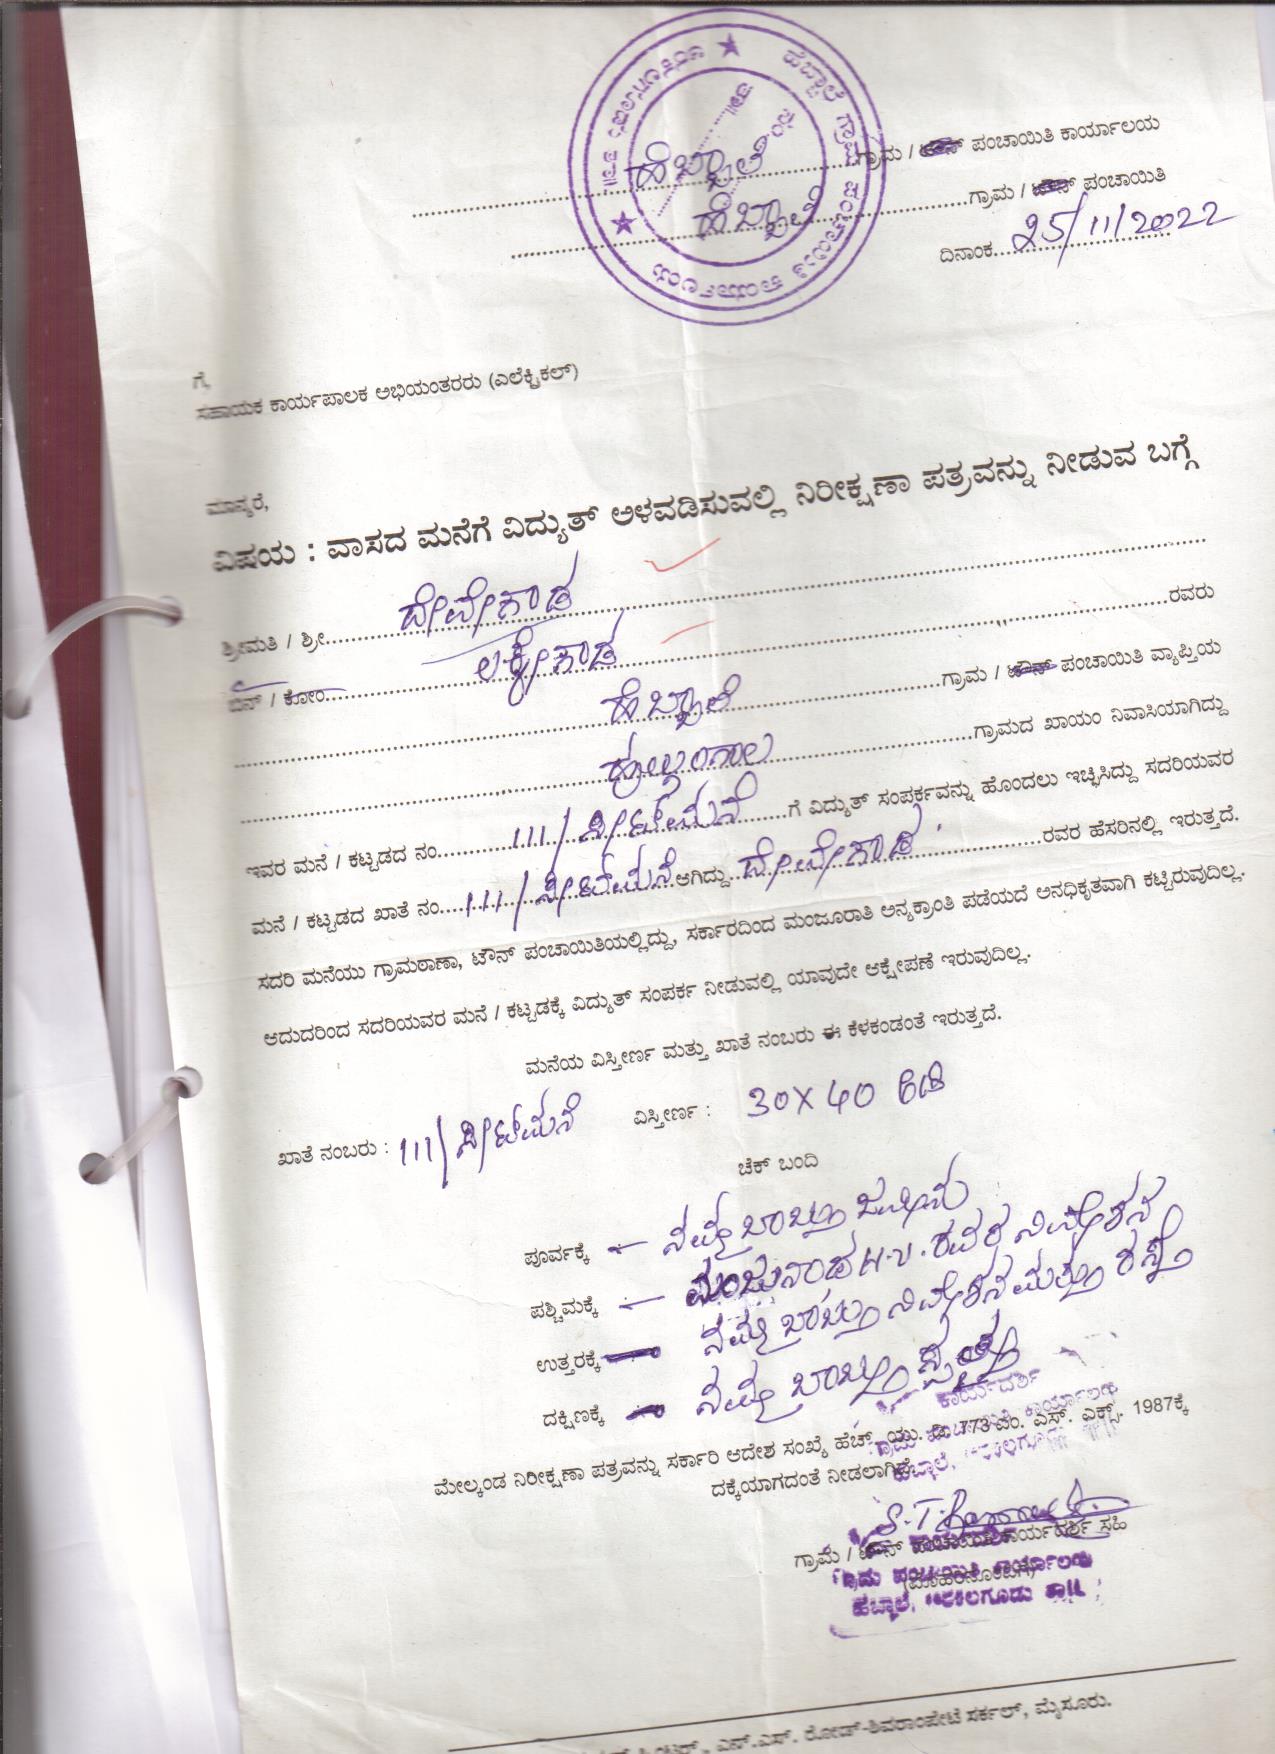 ಹೆಬ್ಬಾಲೆ ಗ್ರಾಮ ಪಂಚಾಯಿತಿ ಕಾರ್ಯಾಲಯ
ಹೆಬ್ಬಾಲೆ ಗ್ರಾಮ / ಟೌನ್ ಪಂಚಾಯಿತಿ ಕಾರ್ಯಾಲಯ
ಹೆಬ್ಬಾಲೆ ಗ್ರಾಮ / ಟೌನ್ ಪಂಚಾಯಿತಿ
ದಿನಾಂಕ 25/11/2022
ಗೆ,
ಸಹಾಯಕ ಕಾರ್ಯಪಾಲಕ ಅಭಿಯಂತರರು (ಎಲೆಕ್ಟ್ರಿಕಲ್)
ಮಾನ್ಯರೆ,
ವಿಷಯ : ವಾಸದ ಮನೆಗೆ ವಿದ್ಯುತ್ ಅಳವಡಿಸುವಲ್ಲಿ ನಿರೀಕ್ಷಣಾ ಪತ್ರವನ್ನು ನೀಡುವ ಬಗ್ಗೆ
ಶ್ರೀಮತಿ / ಶ್ರೀ ದೇವೇಗೌಡ
ಬಿನ್ / ಕೋಂ ರವರು
ಹೆಬ್ಬಾಲೆ ಗ್ರಾಮ / ಟೌನ್ ಪಂಚಾಯಿತಿ ವ್ಯಾಪ್ತಿಯ
ಗ್ರಾಮದ ಖಾಯಂ ನಿವಾಸಿಯಾಗಿದ್ದು
ಇವರ ಮನೆ / ಕಟ್ಟಡದ ನಂ 111/ ಗೆ ವಿದ್ಯುತ್ ಸಂಪರ್ಕವನ್ನು ಹೊಂದಲು ಇಚ್ಛಿಸಿದ್ದು ಸದರಿಯವರ
ಮನೆ / ಕಟ್ಟಡದ ಖಾತೆ ನಂ 111/ ಆಗಿದ್ದು ದೇವೇಗೌಡ ರವರ ಹೆಸರಿನಲ್ಲಿ ಇರುತ್ತದೆ.
ಸದರಿ ಮನೆಯು ಗ್ರಾಮಠಾಣಾ, ಟೌನ್ ಪಂಚಾಯಿತಿಯಲ್ಲಿದ್ದು, ಸರ್ಕಾರದಿಂದ ಮಂಜೂರಾತಿ ಅನ್ಯಕ್ರಾಂತಿ ಪಡೆಯದೆ ಅನಧಿಕೃತವಾಗಿ ಕಟ್ಟಿರುವುದಿಲ್ಲ.
ಆದುದರಿಂದ ಸದರಿಯವರ ಮನೆ / ಕಟ್ಟಡಕ್ಕೆ ವಿದ್ಯುತ್ ಸಂಪರ್ಕ ನೀಡುವಲ್ಲಿ ಯಾವುದೇ ಆಕ್ಷೇಪಣೆ ಇರುವುದಿಲ್ಲ.
ಮನೆಯ ವಿಸ್ತೀರ್ಣ ಮತ್ತು ಖಾತೆ ನಂಬರು ಈ ಕೆಳಕಂಡಂತೆ ಇರುತ್ತದೆ.
ಖಾತೆ ನಂಬರು : 111/ ವಿಸ್ತೀರ್ಣ : 30X40 ಅಡಿ
ಚೆಕ್ ಬಂದಿ
ಪೂರ್ವಕ್ಕೆ — ನಮ್ಮ ಬಾಬ್ತು ಜಮೀನು
ಪಶ್ಚಿಮಕ್ಕೆ — ಮಂಜುನಾಥ H.V. ರವರ ನಿವೇಶನ
ಉತ್ತರಕ್ಕೆ — ನಮ್ಮ ಬಾಬ್ತು ನಿವೇಶನ ಮತ್ತು ರಸ್ತೆ
ದಕ್ಷಿಣಕ್ಕೆ — ನಮ್ಮ ಬಾಬ್ತು ಸ್ವತ್ತು
ಕಾರ್ಯದರ್ಶಿ
ಮೇಲ್ಕಂಡ ನಿರೀಕ್ಷಣಾ ಪತ್ರವನ್ನು ಸರ್ಕಾರಿ ಆದೇಶ ಸಂಖ್ಯೆ ಹೆಚ್. ಯು. ಡಿ. 773 ಎಂ. ಎಸ್. ಎಕ್ಸ್. 1987ಕ್ಕೆ
ದಕ್ಕೆಯಾಗದಂತೆ ನೀಡಲಾಗಿದೆ.
ಗ್ರಾಮ / ಟೌನ್ ಪಂಚಾಯಿತಿ ಕಾರ್ಯದರ್ಶಿ ಸಹಿ
(ಮೊಹರಿನೊಂದಿಗೆ)
ಗ್ರಾಮ ಪಂಚಾಯಿತಿ ಕಾರ್ಯಾಲಯ
ಹೆಬ್ಬಾಲೆ, ಅರಕಲಗೂಡು ತಾ||
ಎನ್.ಎಸ್. ರೋಡ್-ಶಿವರಾಂಪೇಟೆ ಸರ್ಕಲ್, ಮೈಸೂರು.